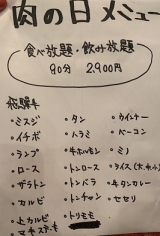 肉の日メニュー
食べ放題・飲み放題
90分 2,900円
飛騨牛
・ミスジ
・イチボ
・ランプ
・ロース
・ザブトン
・カルビ
・上カルビ
・タン
・ハラミ
・牛ホルモン
・トンロース
・トンバラ
・トンチャン
・トリモモ
・ウインナー
・ベーコン
・ミノ
・ライス(大・中・小)
・牛タンカレー
・セセリ